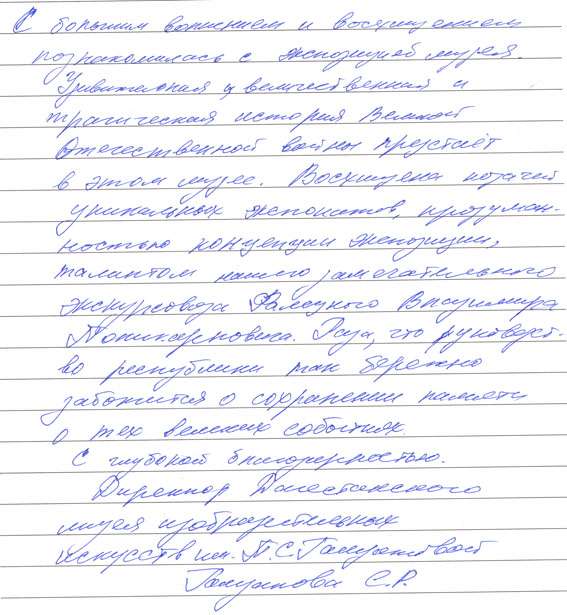 С большим волнением и восхищением
познакомилась с экспозицией музея.
Удивительная, величественная и
трагическая история Великой
Отечественной войны предстаёт
в этом музее. Восхищена подачей
уникальных экспонатов, продуман-
ностью концепции экспозиции,
талантом нашего замечательного
экскурсовода Владимира
Поликарповича. Рада, что руководст-
во республики так бережно
заботится о сохранении памяти
о тех великих событиях.
С глубокой благодарностью.
Директор Дагестанского
музея изобразительных
искусств им. П.С.Гамзатовой
Гамзатова С.Р.